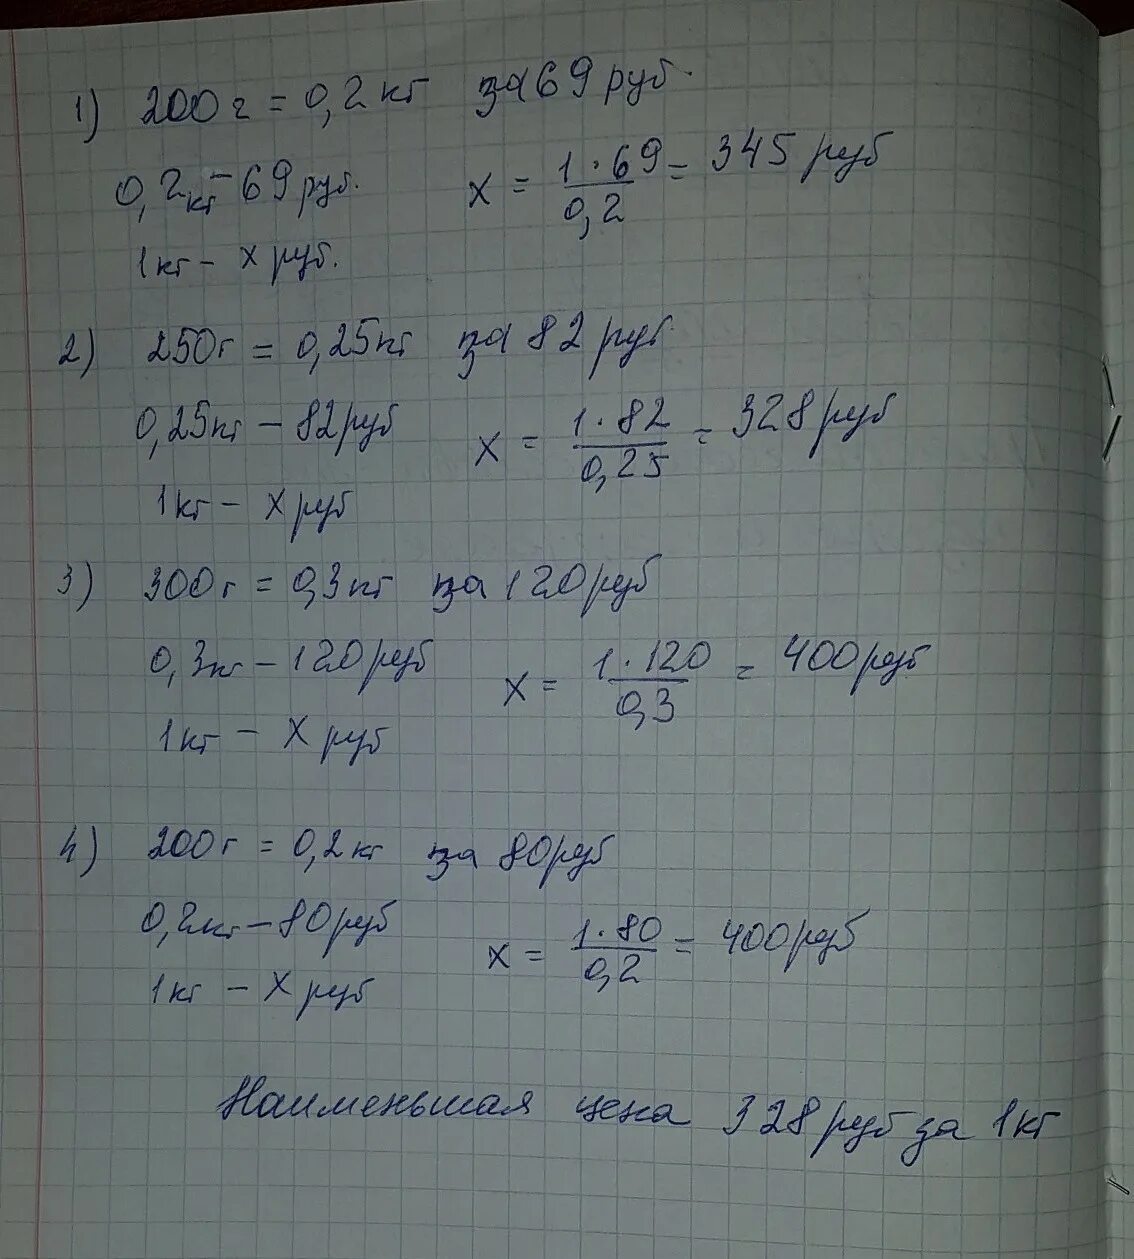 1) 200 г = 0,2 кг за 69 руб.
0,2 кг – 69 руб. x = 1·69/0,2 = 345 руб
1 кг – x руб.
2) 250 г = 0,25 кг за 82 руб
0,25 кг – 82 руб x = 1·82/0,25 = 328 руб
1 кг – x руб
3) 300 г = 0,3 кг за 120 руб
0,3 кг – 120 руб x = 1·120/0,3 = 400 руб
1 кг – x руб
4) 200 г = 0,2 кг за 80 руб
0,2 кг – 80 руб x = 1·80/0,2 = 400 руб
1 кг – x руб
Наименьшая цена 328 руб за 1 кг